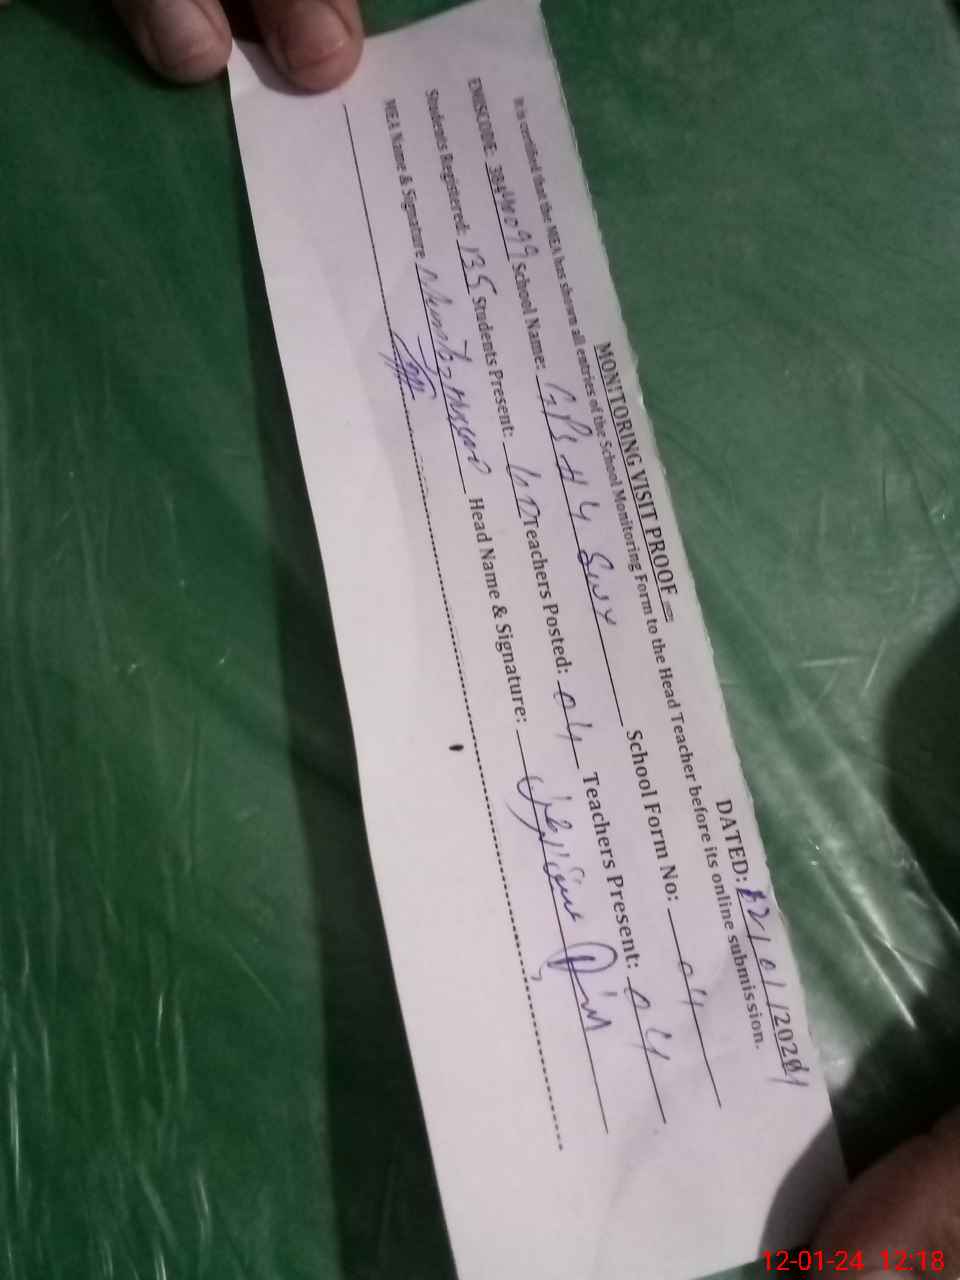 MONITORING VISIT PROOF
DATED: 12/01/2024
It is certified that the MEA has shown all entries of the School Monitoring Form to the Head Teacher before its online submission.
EMISCODE: School Name: GPS School Form No: 04
Students Registered: 135 Students Present: Teachers Posted: 04 Teachers Present: 04
MEA Name & Signature Head Name & Signature:
12-01-24 12:18